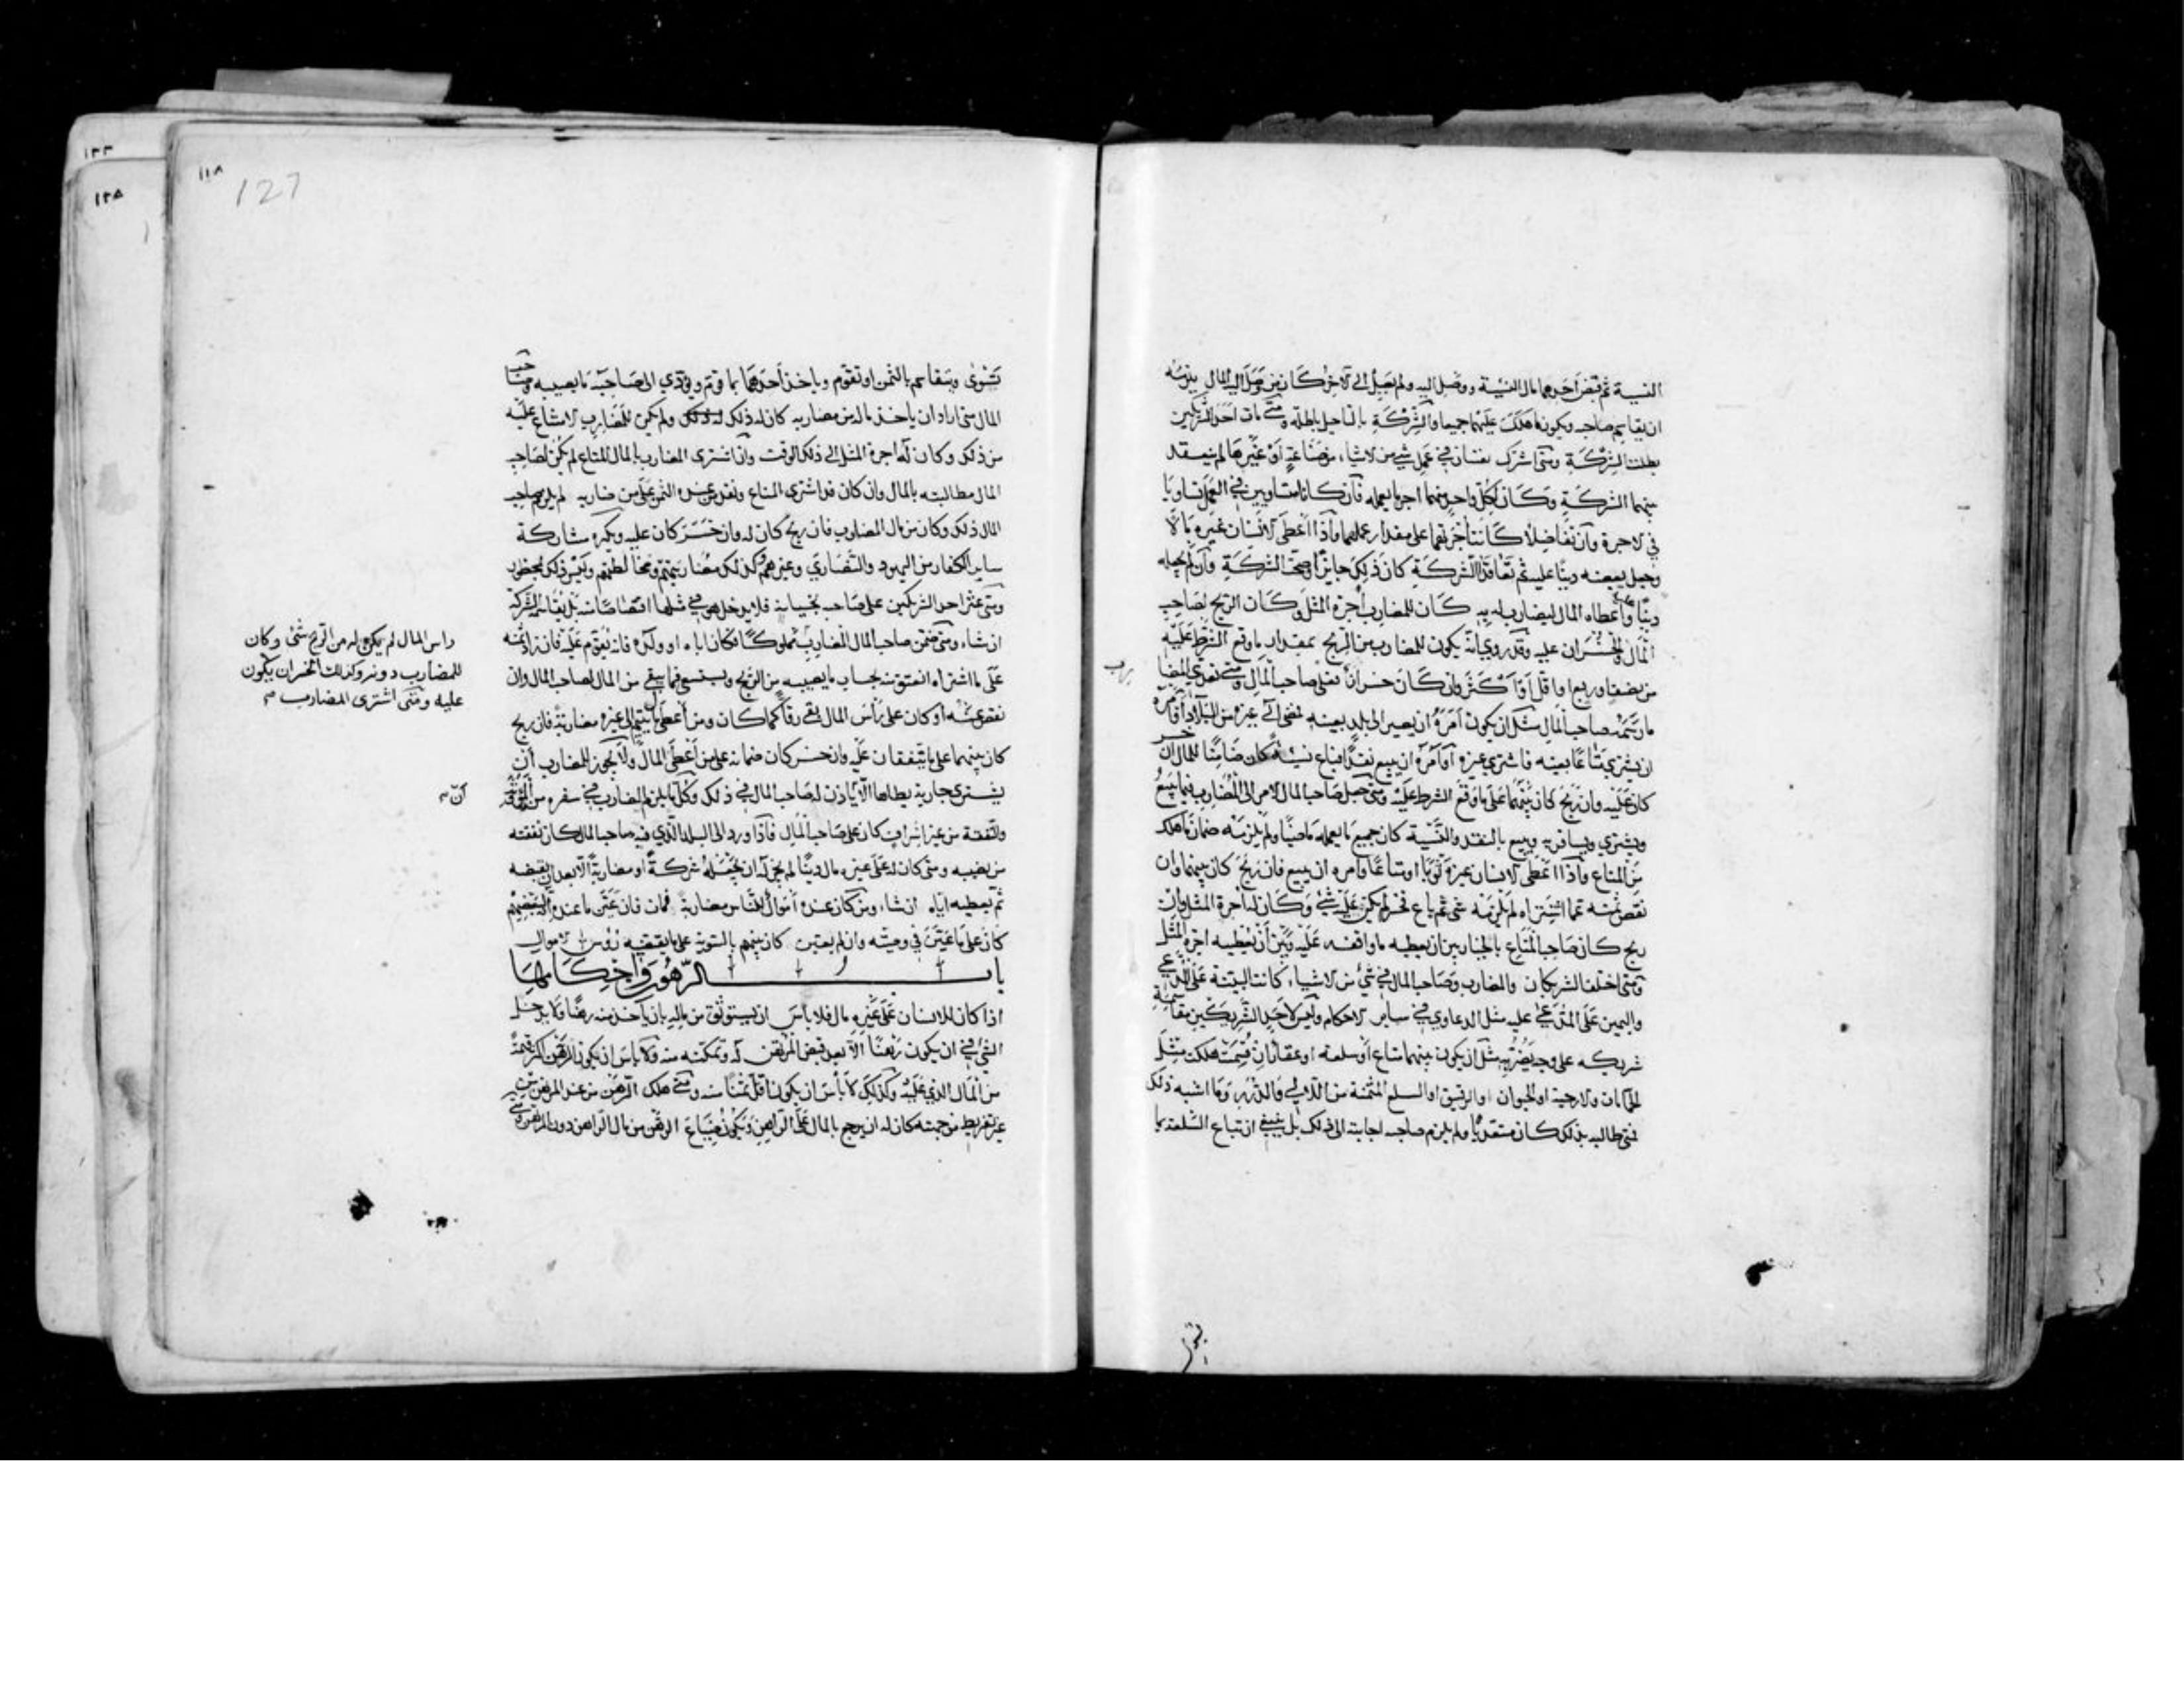 النسية ثم قبض أحدهما مال النسية ووصل إليه ولم يصل إلى الآخر كان من وصل إليه المال يلزمه
ان يقاسم صاحبه ويكون ما هلك عليهما جميعا والشركة بالتاجيل باطلة ومتى مات احد الشريكين
بطلت الشركة ومتى اشترك نفسان في عمل شي من الاشياء من صناعة او غيرها لم ينعقد
بينهما الشركة وكان لكل واحد منهما اجر ما يعمله فان كانا متساويين في العمل تساويا
في الاجرة وان تفاضلا كانت أجرتهما على مقدار عملهما واذا اعطى الانسان غيره مالا
وجعل بعضه دينا عليه ثم تعاقدا الشركة كان ذلك جايزا وصحت الشركة وان لم يجعله
دينا واعطاه المال ليضارب له به كان للمضارب أجرة المثل وكان الربح لصاحب
المال والخسران عليه وقد روي انه يكون للمضارب من الربح بمقدار ما وقع الشرط عليه
من نصف او ربع او اقل او اكثر وان كان خسرانا فعلى صاحب المال ومتى تعدى المضا
رب
ما رسمه صاحب المال مثل ان يكون أمره ان يصير الى بلد بعينه فمضى الى غيره من البلاد او امره
ان يشتري متاعا بعينه فاشترى غيره أو أمره ان يبيع نقدا فباع نسيئة كان ضامنا للمال ان خسر
كان عليه وان ربح كان بينهما على ما وقع الشرط عليه ومتى جعل صاحب المال الامر الى المضارب فيما يبيع
ويشتري ويسافر به ويبيع بالنقد والنسية كان جميع ما يعمله ماضيا ولم يلزمه ضمان ما هلك
من المتاع واذا اعطى الانسان غيره ثوبا او متاعا وامره ان يبيع فان ربح كان بينهما وان
نقص ثمنه عما اشتراه لم يلزمه شي ثم باع فخسر لم يكن عليه شي وكان له أجرة المثل وان
ربح كان صاحب المتاع بالخيار بين ان يعطيه ما واقفه عليه وبين أن يعطيه اجرة المثل
ومتى اختلف الشريكان والمضارب وصاحب المال في شي من الاشياء كانت البينة على المدعي
واليمين على المدعى عليه مثل الدعاوي في ساير الاحكام وليس لاحد الشريكين مقاسمة
شريكه على وجه يضر به مثل ان يكون بينهما متاع أو سلعة او عقار ان قسمت هلكت مثل
الحمامات والارحية او الحيوان او الرقيق او السلع المثمنة من اللالي والدر وما اشبه ذلك
فمتى طالبه بذلك كان متعديا ولم يلزم صاحبه اجابته الى ذلك بل ينبغي ان تباع السلعة بما
تسوى
١١٨
127
١٢٣
١٢٥
تسوى ويتقاسم بالثمن او تقوم وياخذ أحدهما بما قوم ويؤدي الى صاحبه ما يصيبه وصاحب
المال متى اراد ان ياخذ ماله من مضاربه كان له ذلك ولم يكن للمضارب الامتناع عليه
من ذلك وكان له اجرة المثل الى ذلك الوقت وان اشترى المضارب بالمال المتاع لم يكن لصاحب
المال مطالبته بالمال وان كان قد اشترى المتاع ونقد من عنده الثمن على من ضاربه لم يلزم صاحب
المال ذلك وكان من مال المضارب فان ربح كان له وان خسر كان عليه ويكره مشاركة
ساير الكفار من اليهود والنصارى وغيرهم وكذلك مضاربتهم ومخالطتهم وليس ذلك بمحظور
ومتى عثر احد الشريكين على صاحبه بخيانة فلا يدخل هو في مثلها اقتصاصا منه بل يقاسمه الشركة
ان شاء ومتى ضمن صاحب المال المضارب
راس المال لم يكن له من الربح شئ وكان
للمضارب دونه وكذلك الخسران يكون
عليه ومتى اشترى المضارب
مملوكا فكان اباه او ولده فانه يقوم عليه فان زاد ثمنه
على ما اشتراه انعتق منه بحساب ما يصيبه من الربح ويستسعى فيما يبقى من المال لصاحب المال وان
نقص ثمنه أو كان على رأس المال بقي رقا كما كان ومن أعطى مال يتيم الى غيره مضاربة فان ربح
كان بينهما على ما يتفقان عليه وان خسر كان ضمانه على من أعطى المال ولا يجوز للمضارب أن
يشتري جارية يطاها الا ان ياذن له صاحب المال في ذلك وكل ما يلزم المضارب في سفره من المؤنة
والنفقة من غير اسراف كان على صاحب المال فاذا ورد الى البلد الذي فيه صاحب المال كان نفقته
من نصيبه ومتى كان له على غيره مال دينا لم يجز له ان يجعله شركة او مضاربة الا بعد ان يقبضه
ثم يعطيه اياه ان شاء ومن كان عنده أموال للناس مضاربة فمات فان عين ما عنده انه لبعضهم
كان على ما عين في وصيته وان لم يعين كان بينهم بالسوية على ما يقتضيه رؤس الاموال
باب الرهون واحكامها
اذا كان للانسان على غيره مال فلا باس ان يستوثق من ماله بان ياخذ منه رهنا ولا يدخل
الشئ في ان يكون رهنا الا بعد قبض المرتهن له وتمكنه منه ولا باس ان يكون الرهن اكثر قيمة
من المال الذي عليه وكذلك لا باس ان يكون اقل ثمنا منه ومتى هلك الرهن من عند المرتهن من
غير تفريط من جهته كان له ان يرجع بالمال على الراهن ويكون ضياع الرهن من مال الراهن دون المرتهن ومتى